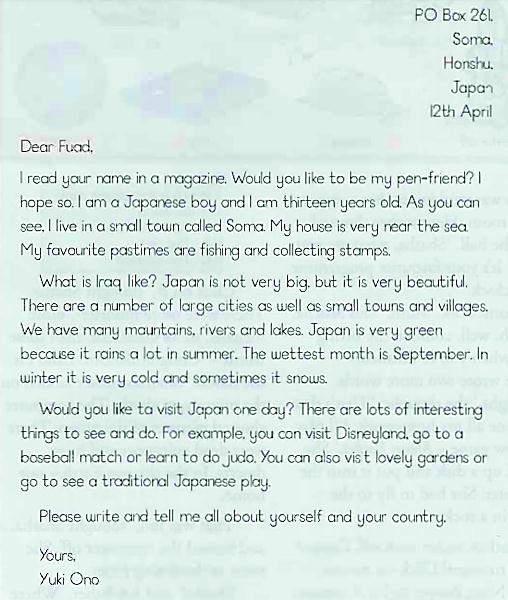 PO Box 261,
Soma,
Honshu,
Japan
12th April
Dear Fuad,
I read your name in a magazine. Would you like to be my pen-friend? I
hope so. I am a Japanese boy and I am thirteen years old. As you can
see, I live in a small town called Soma. My house is very near the sea.
My favourite pastimes are fishing and collecting stamps.
What is Iraq like? Japan is not very big, but it is very beautiful.
There are a number of large cities as well as small towns and villages.
We have many mountains, rivers and lakes. Japan is very green
because it rains a lot in summer. The wettest month is September. In
winter it is very cold and sometimes it snows.
Would you like to visit Japan one day? There are lots of interesting
things to see and do. For example, you can visit Disneyland, go to a
baseball match or learn to do judo. You can also visit lovely gardens or
go to see a traditional Japanese play.
Please write and tell me all about yourself and your country.
Yours,
Yuki Ono